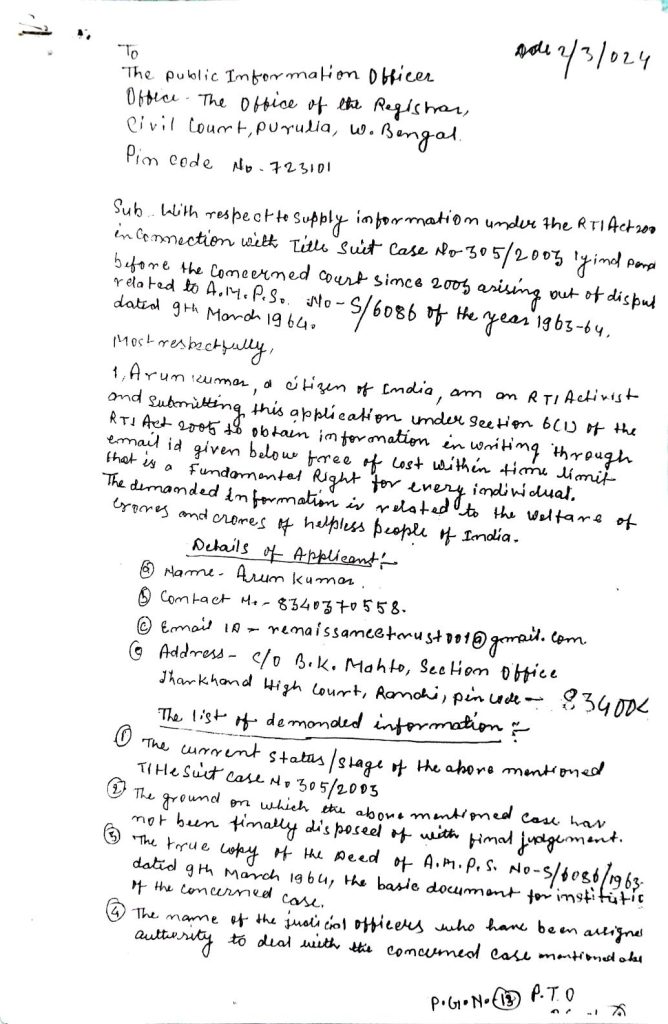 To
Date 2/3/024
The public Information Officer
Office - The Office of the Registrar,
Civil Court, Purulia, W. Bengal.
Pin code No. - 723101
Sub.. With respect to supply information under the RTI Act 200
in Connection with Title Suit Case No 305/2003 lying pend
before the Concerned court since 2003 arising out of disput
related to A.M.P.S. No - S/6086 of the year 1963-64,
dated 9th March 1964.
Most respectfully,
I, Arun Kumar, a citizen of India, am an RTI Activist
and submitting this application under section 6(1) of the
RTI Act 2005 to obtain information in writing through
email id given below free of cost within time limit
that is a Fundamental Right for every individual.
The demanded information is related to the welfare of
crores and crores of helpless people of India.
Details of Applicant :-
(a) Name - Arun Kumar.
(b) Contact No. - 8340370558.
(c) Email ID - renaissancetrust001@gmail.com
Address - C/O B.K. Mahto, Section Office
Jharkhand High Court, Ranchi, pin code - 83400
The list of demanded information :-
(1) The current status/stage of the above mentioned
Title Suit Case No 305/2003
(2) The ground on which the above mentioned case has
not been finally disposed of with final judgement.
(3) The true copy of the Deed of A.M.P.S. No-S/6086/1963-
dated 9th March 1964, the basic document for institutio
of the concerned case.
(4) The name of the judicial officers who have been assigned
authority to deal with the concerned case mentioned
P.G.No. (13) P.T.O